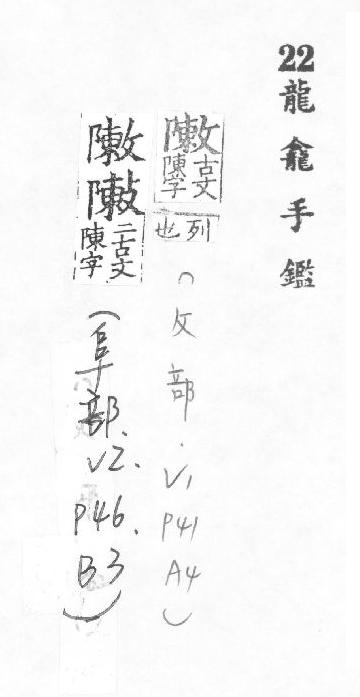 22龍龕手鑑
敶
古文
陳字
列也
(攵部.V1 P41 A4)
敶
二古文
陳字
(阜部.V2.P46.B3)